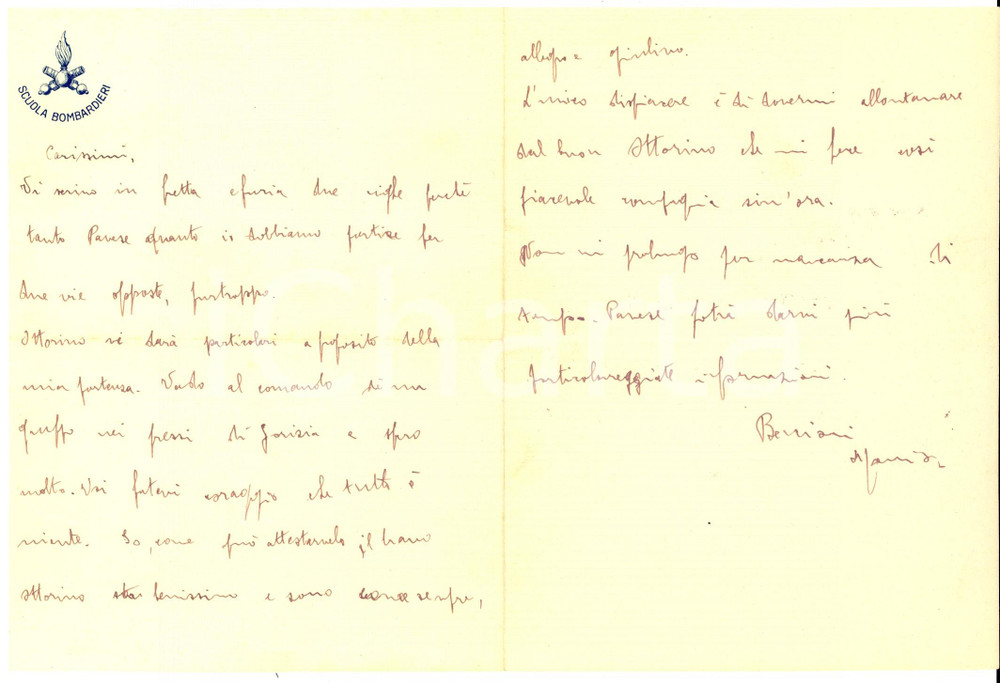 SCUOLA BOMBARDIERI
Carissimi,
Vi scrivo in fretta e furia due righe perché
tanto Pavese quanto io dobbiamo partire per
due vie opposte, purtroppo.
Ottorino vi darà particolari a proposito della
mia partenza. Vado al comando di un
gruppo nei pressi di Gorizia e spero
molto. Voi fatevi coraggio che tutto è
niente. Io, come può attestarvelo il bravo
Ottorino sto benissimo e sono come sempre,
allegro e
L'unico dispiacere è di dovermi allontanare
dal buon Ottorino che mi fece così
piacevole compagnia sin'ora.
Non mi prolungo per mancanza di
tempo. Pavese potrà darvi più
particolareggiate informazioni.
Bacioni
iCharta